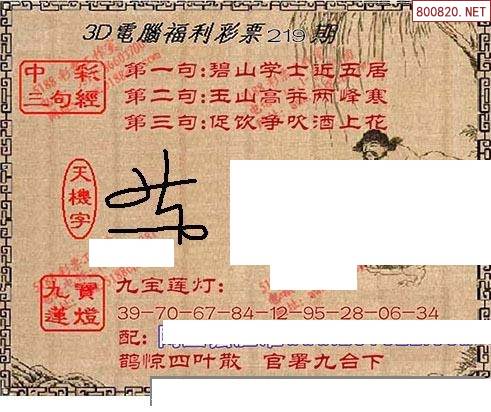 800820.NET
3D電腦福利彩票219期
中彩
三句經
第一句:碧山学士近五居
第二句:玉山高并两峰寒
第三句:促饮争吹酒上花
天機字
九寶
蓮燈
九宝莲灯:
39-70-67-84-12-95-28-06-34
配:
鹊惊四叶散 官署九台下